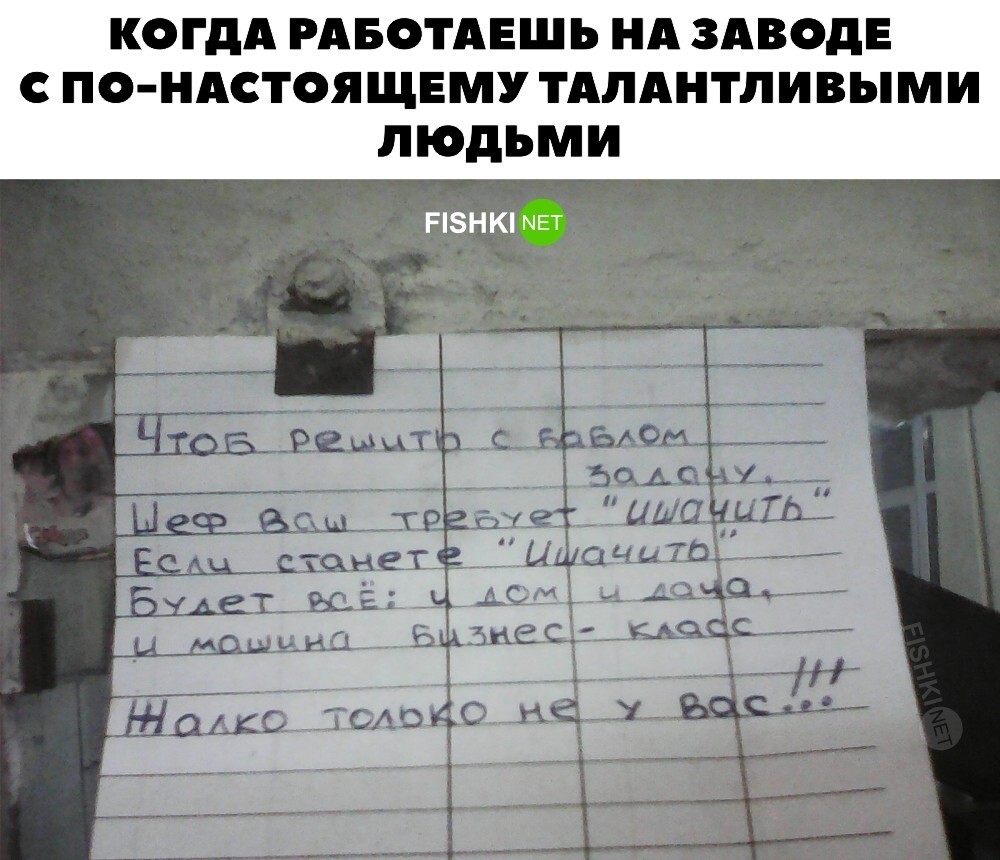 КОГДА РАБОТАЕШЬ НА ЗАВОДЕ
С ПО-НАСТОЯЩЕМУ ТАЛАНТЛИВЫМИ
ЛЮДЬМИ
FISHKI NET
Чтоб решить с баблом
задачу,
Шеф ваш требует "ишачить"
Если станете "Ишачить"
Будет всё: и дом и дача,
и машина бизнес-класс
Жалко только не у вас!!!
FISHKI NET